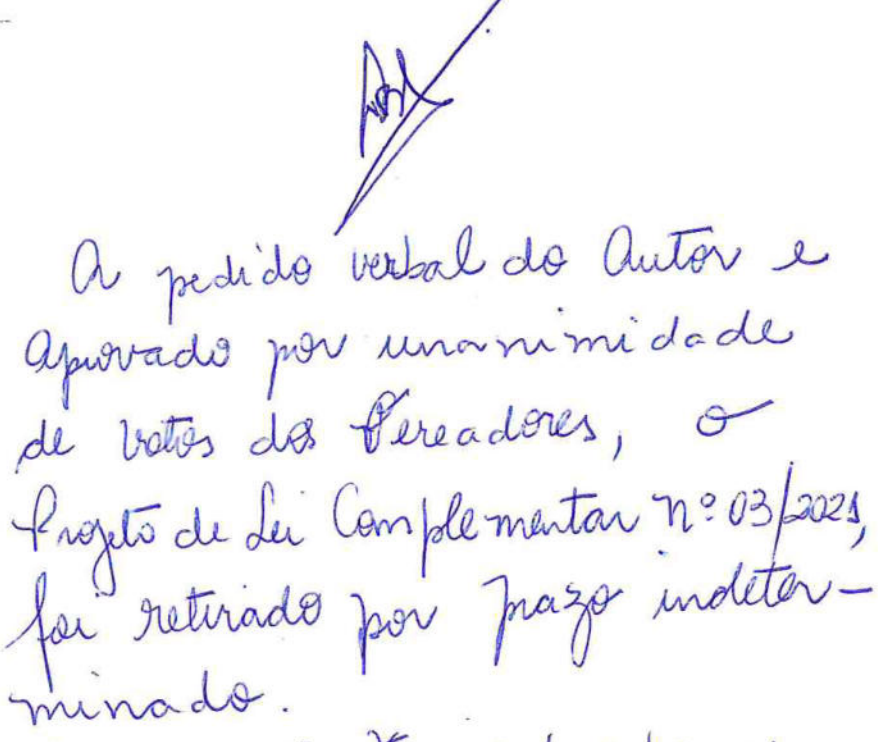 A pedido verbal do Autor e
aprovado por unanimidade
de votos dos Vereadores, o
Projeto de Lei Complementar nº 03/2021,
foi retirado por prazo indeter-
minado.